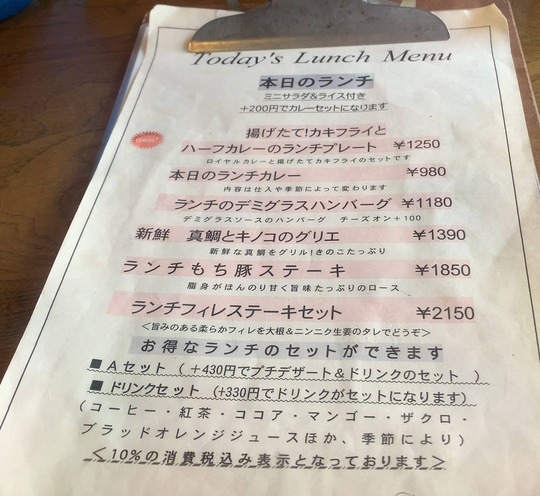 Today's Lunch Menu
本日のランチ
ミニサラダ&ライス付き
+200円でカレーセットになります
揚げたて!カキフライと
ハーフカレーのランチプレート ¥1250
ロイヤルカレーと揚げたてカキフライのセットです
本日のランチカレー ¥980
内容は仕入や季節によって変わります
ランチのデミグラスハンバーグ ¥1180
デミグラスソースのハンバーグ チーズオン+100
新鮮 真鯛とキノコのグリエ ¥1390
新鮮な真鯛をグリル!きのこたっぷり
ランチもち豚ステーキ ¥1850
脂身がほんのり甘く旨味たっぷりのロース
ランチフィレステーキセット ¥2150
<旨みのある柔らかフィレを大根&ニンニク生姜のタレでどうぞ>
お得なランチのセットができます
■ Aセット ( +430円でプチデザート&ドリンクのセット )
■ ドリンクセット (+330円でドリンクがセットになります)
(コーヒー・紅茶・ココア・マンゴー・ザクロ・
ブラッドオレンジジュースほか、季節により)
<10%の消費税込み表示となっております>